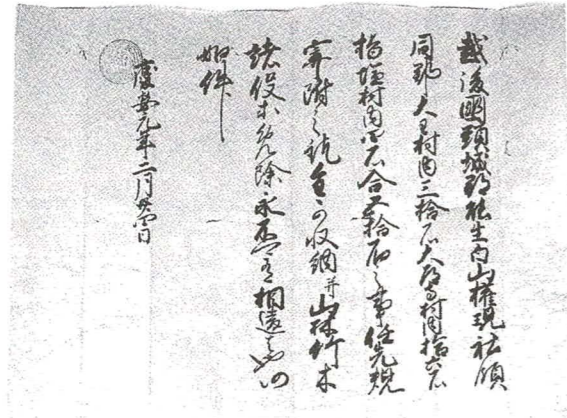 越後国頸城郡能生白山権現社領
同郡大王村内三拾石大沢寺村内拾六石
指塩村内四石合五拾石之事任先規
寄附之訖全可収納并山林竹木
諸役等免除永不可有相違者也仍
如件
慶安元年二月廿四日